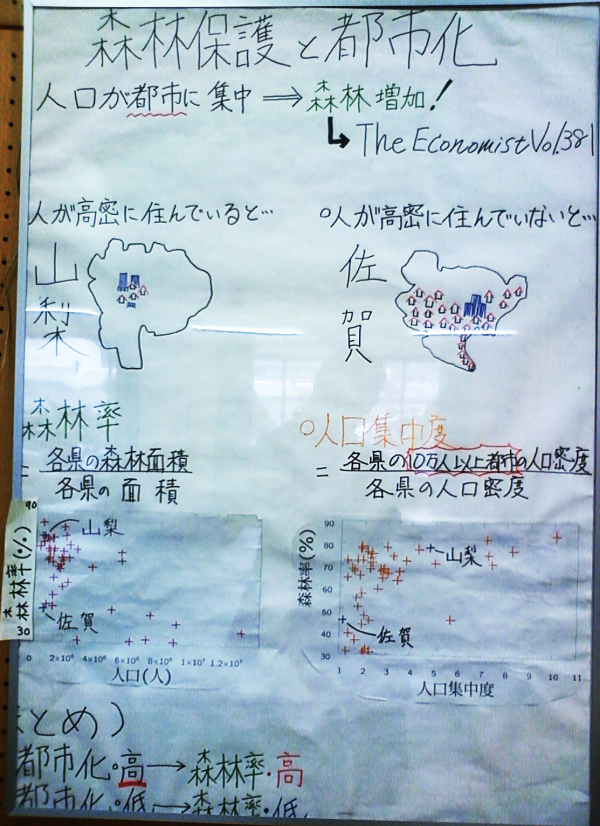 森林保護と都市化
人口が都市に集中 ⇒ 森林増加!
↳ The Economist Vol.381
人が高密に住んでいると…
山梨
○人が高密に住んでいないと…
佐賀
森林率
= 各県の森林面積
各県の面積
○人口集中度
= 各県の10万人以上都市の人口密度
各県の人口密度
森林率(%)
90
30
山梨
佐賀
0 2×10⁶ 4×10⁶ 6×10⁶ 8×10⁶ 1×10⁷ 1.2×10⁷
人口(人)
森林率(%)
90
80
70
60
50
40
30
山梨
佐賀
1 2 3 4 5 6 7 8 9 10 11
人口集中度
まとめ)
都市化・高→森林率・高
都市化・低→森林率・低